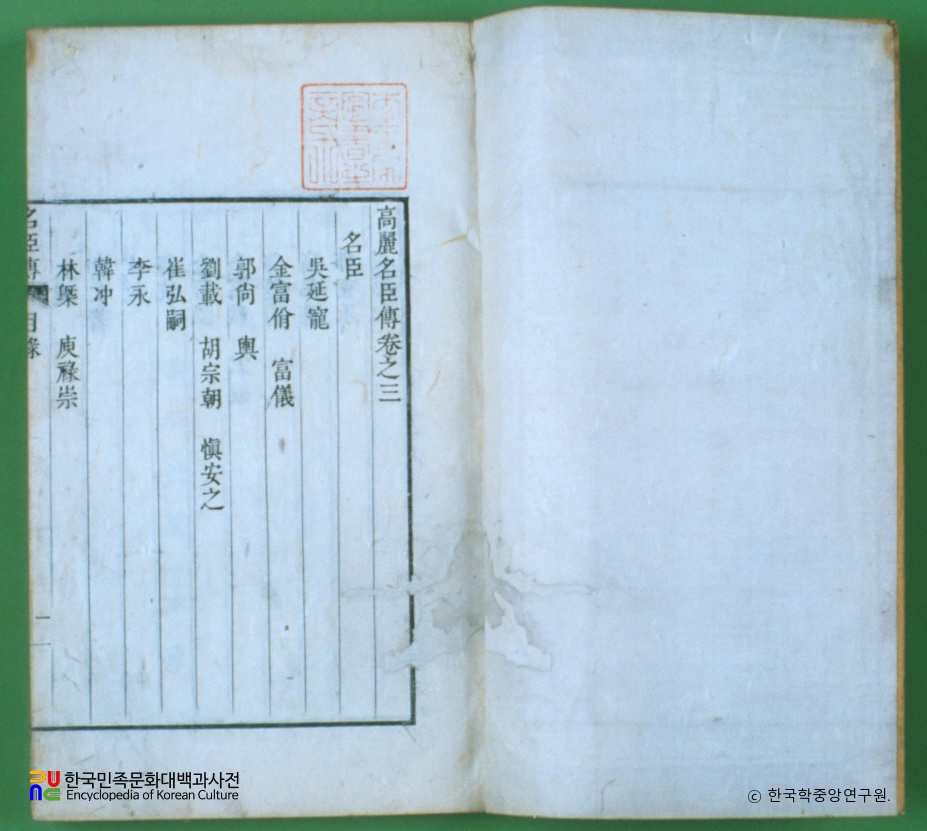 高麗名臣傳卷之三
名臣
吳延寵
金富佾 富儀
郭尙 輿
劉載 胡宗朝 愼安之
崔弘嗣
李永
韓冲
林槩 庾祿崇
名臣傳 目錄 一
한국민족문화대백과사전
Encyclopedia of Korean Culture
© 한국학중앙연구원.